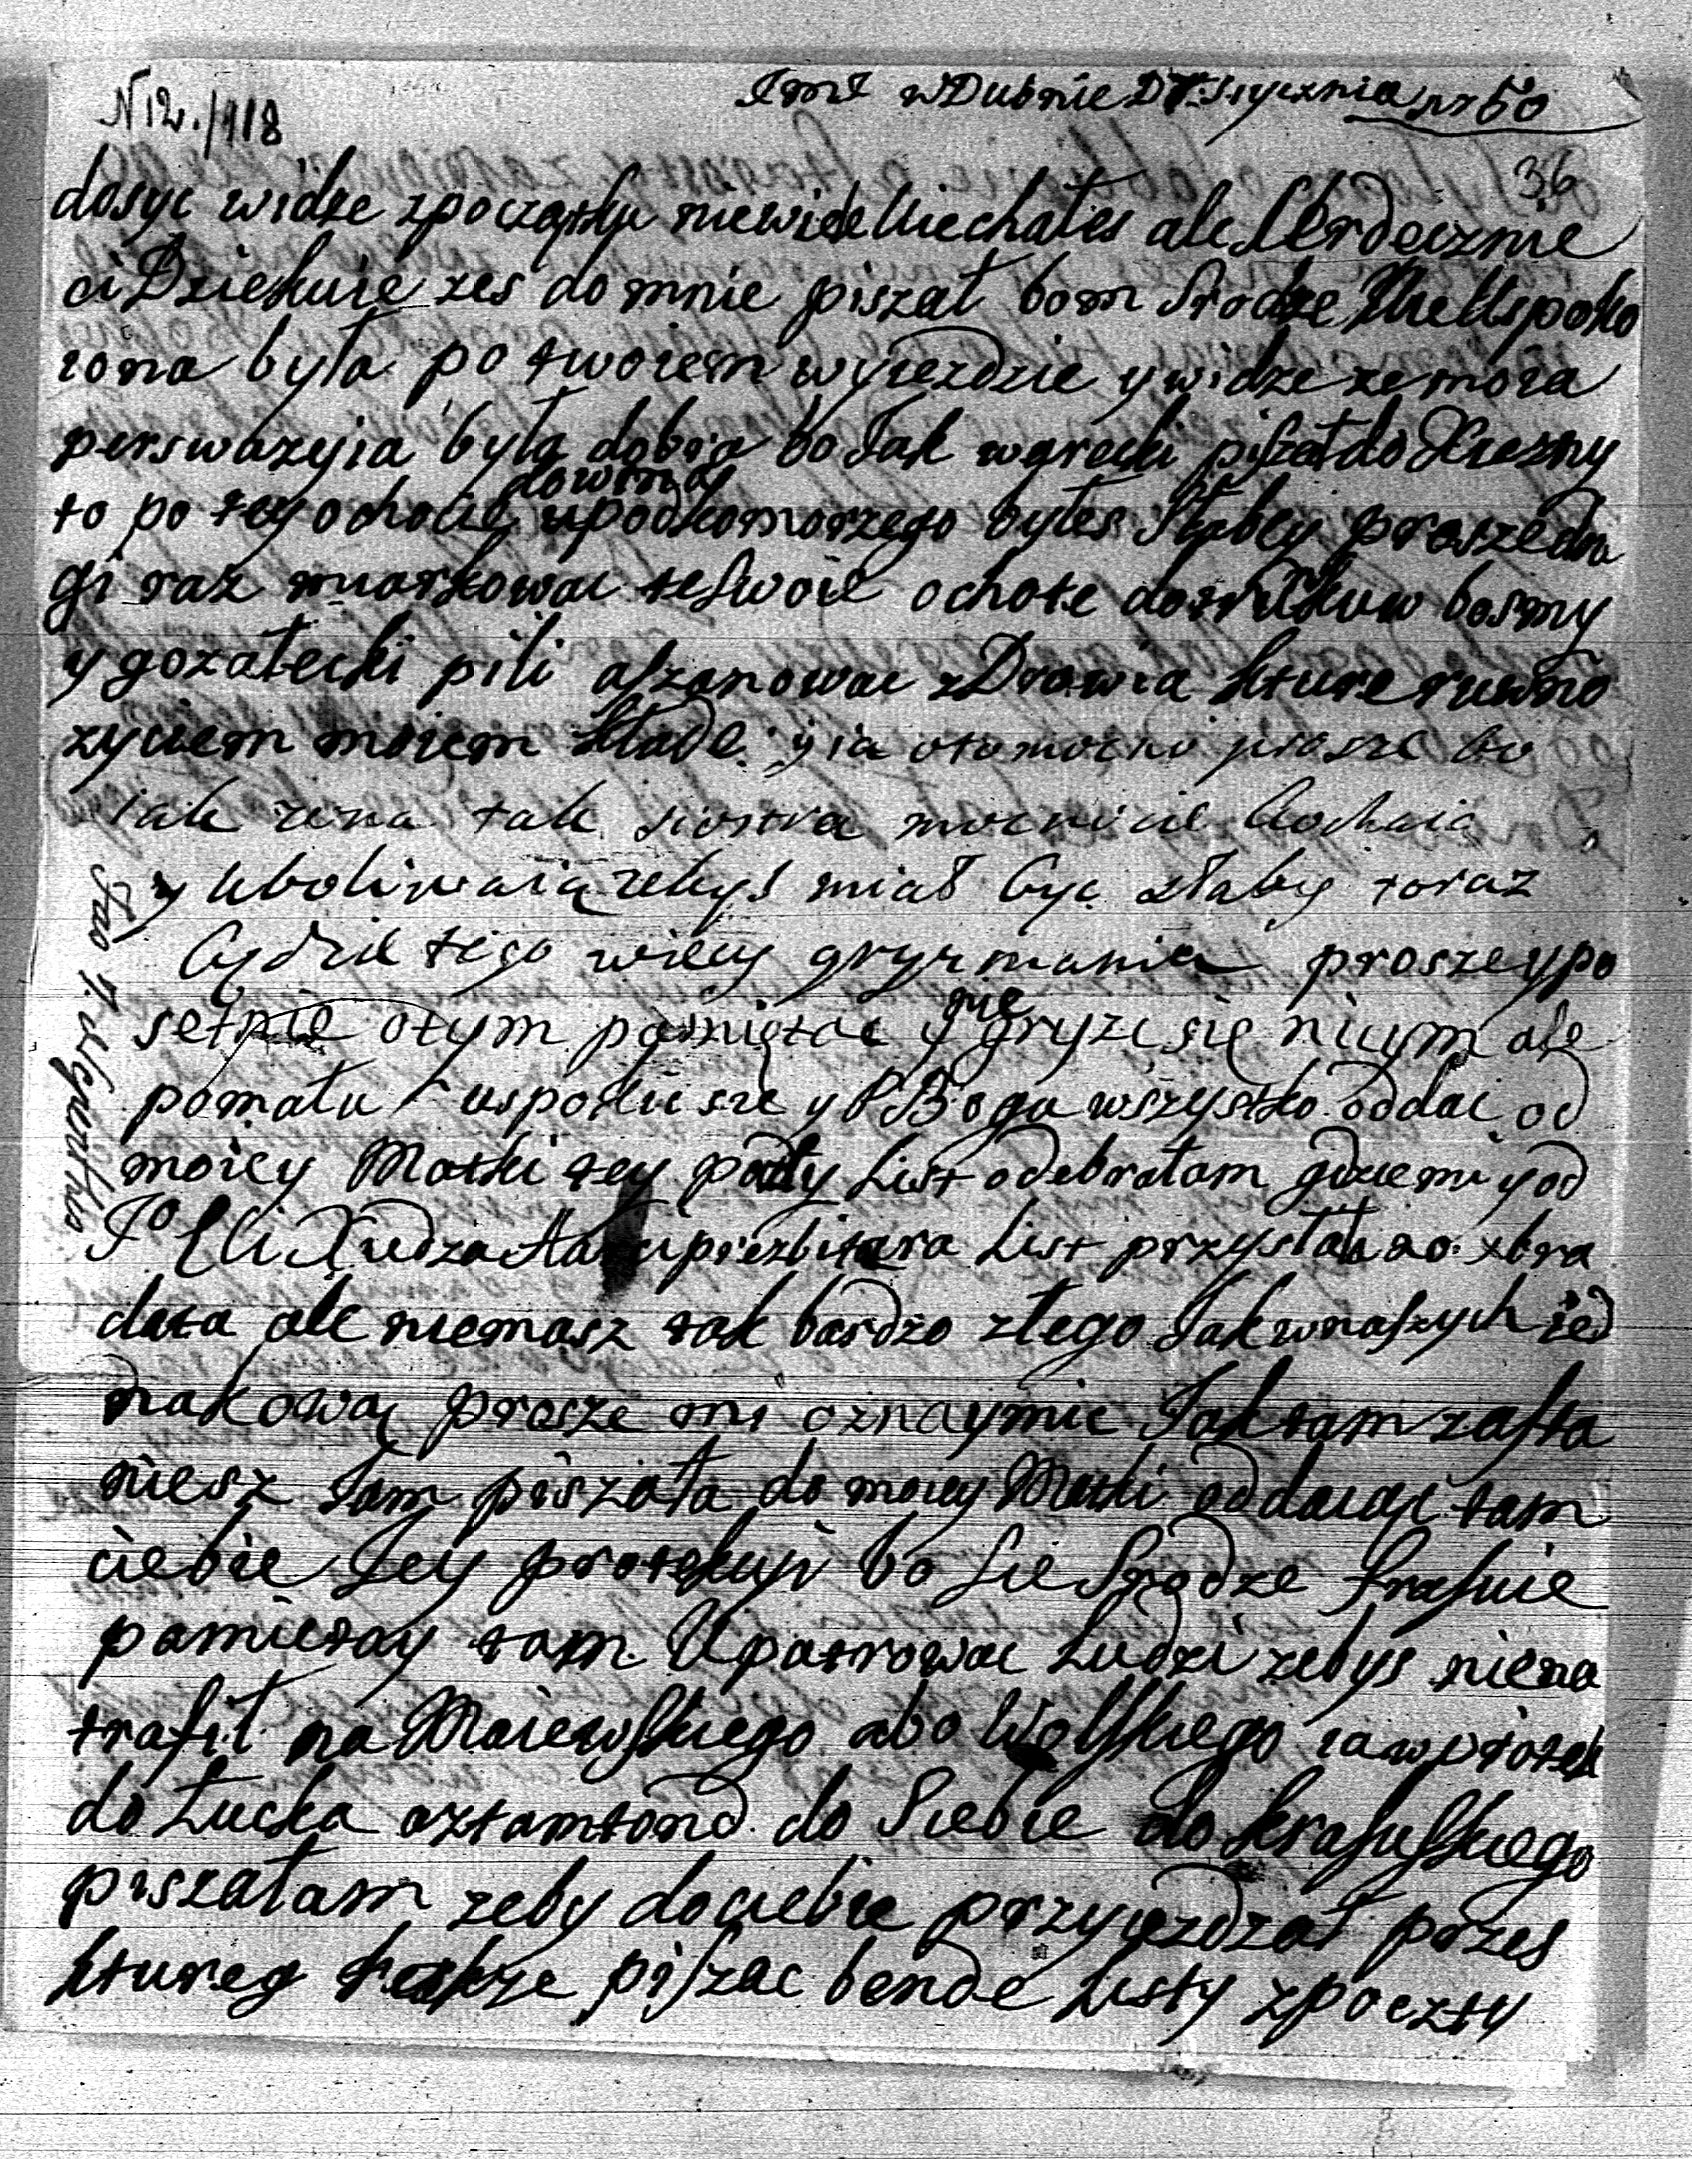 N 12./118
w Dubnie D 7 Stycznia nr 50
36
dosyc widze zpoczątku niewiele Uiechałes ale Serdecznie
ci Dziekuie zes do mnie piszał bom Srodze Nieuspoko
iona była po twoiem wyiezdzie y widze ze moia
perswazyia była dobra bo Jak w grecki piszał do Xiezny
to po tey ochocie dowma upodkomorzego byłes Słaby prosze dru
gi raz miarkowac te swoie ochote do trukuw bosmy
y gozałecki pili a szanowac zDrowia kture ruwno
zyciem moiem kłade. y ia oto mocno prosze bo
iak zona tak siostra mocno cie kochaią
y uboliwaią zebys miał byc słaby toraz
będzie tego wiecy grymania prosze y po
setnie o tym pamiętac y nie gryźć się niczym ale
pomału uspokoić sie y P Bogu wszystko oddac od
moiey Matki tey poczty List odebrałam gdzie mi y od
J° Xiedza Archiprezbitera List przysłała 20: xbra
data ale niemasz tak bardzo złego Jak w naszych ied
nakową prosze mi oznaymic Jak tam zasta
niesz Jam piszała do moiey Matki oddaiąc tam
ciebie Jey protekcyi bo sie Srodze frasuie
pamietay tam Upatrowac Ludzi zebys niena
trafił na Maiewskiego abo Wolskiego ia w piotek
do Łucka a ztamtond do Siebie do krasuskiego
piszałam zeby do ciebie przyiezdzał przes
ktureg takze piszac bende Listy z poczty